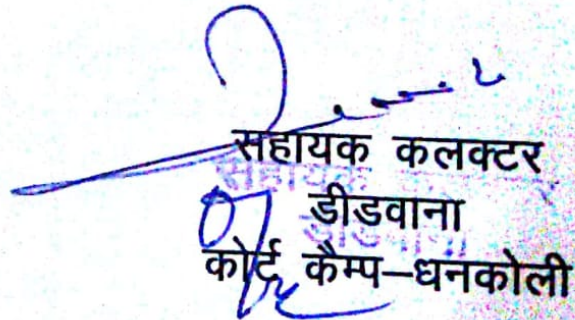 सहायक कलक्टर
डीडवाना
कोर्ट कैम्प–धनकोली